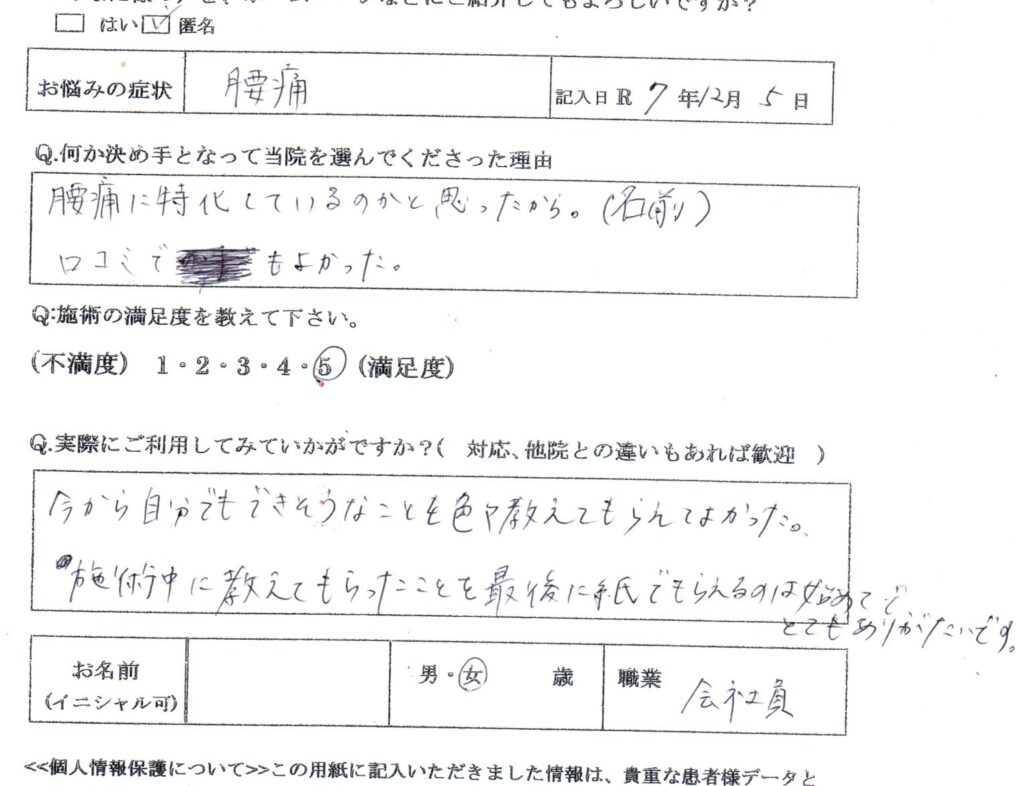 ご紹介してもよろしいですか?
はい 匿名
お悩みの症状 腰痛 記入日 R 7 年 12月 5 日
Q.何か決め手となって当院を選んでくださった理由
腰痛に特化しているのかと思ったから。(名前)
口コミで もよかった。
Q:施術の満足度を教えて下さい。
(不満度) 1・2・3・4・5 (満足度)
Q.実際にご利用してみていかがですか?( 対応、他院との違いもあれば歓迎 )
今から自分でもできそうなことを色々教えてもらえてよかった。
施術中に教えてもらったことを最後に紙でもらえるのは始めてで
とてもありがたいです。
お名前 男・女 歳 職業 会社員
(イニシャル可)
<<個人情報保護について>>この用紙に記入いただきました情報は、貴重な患者様データと